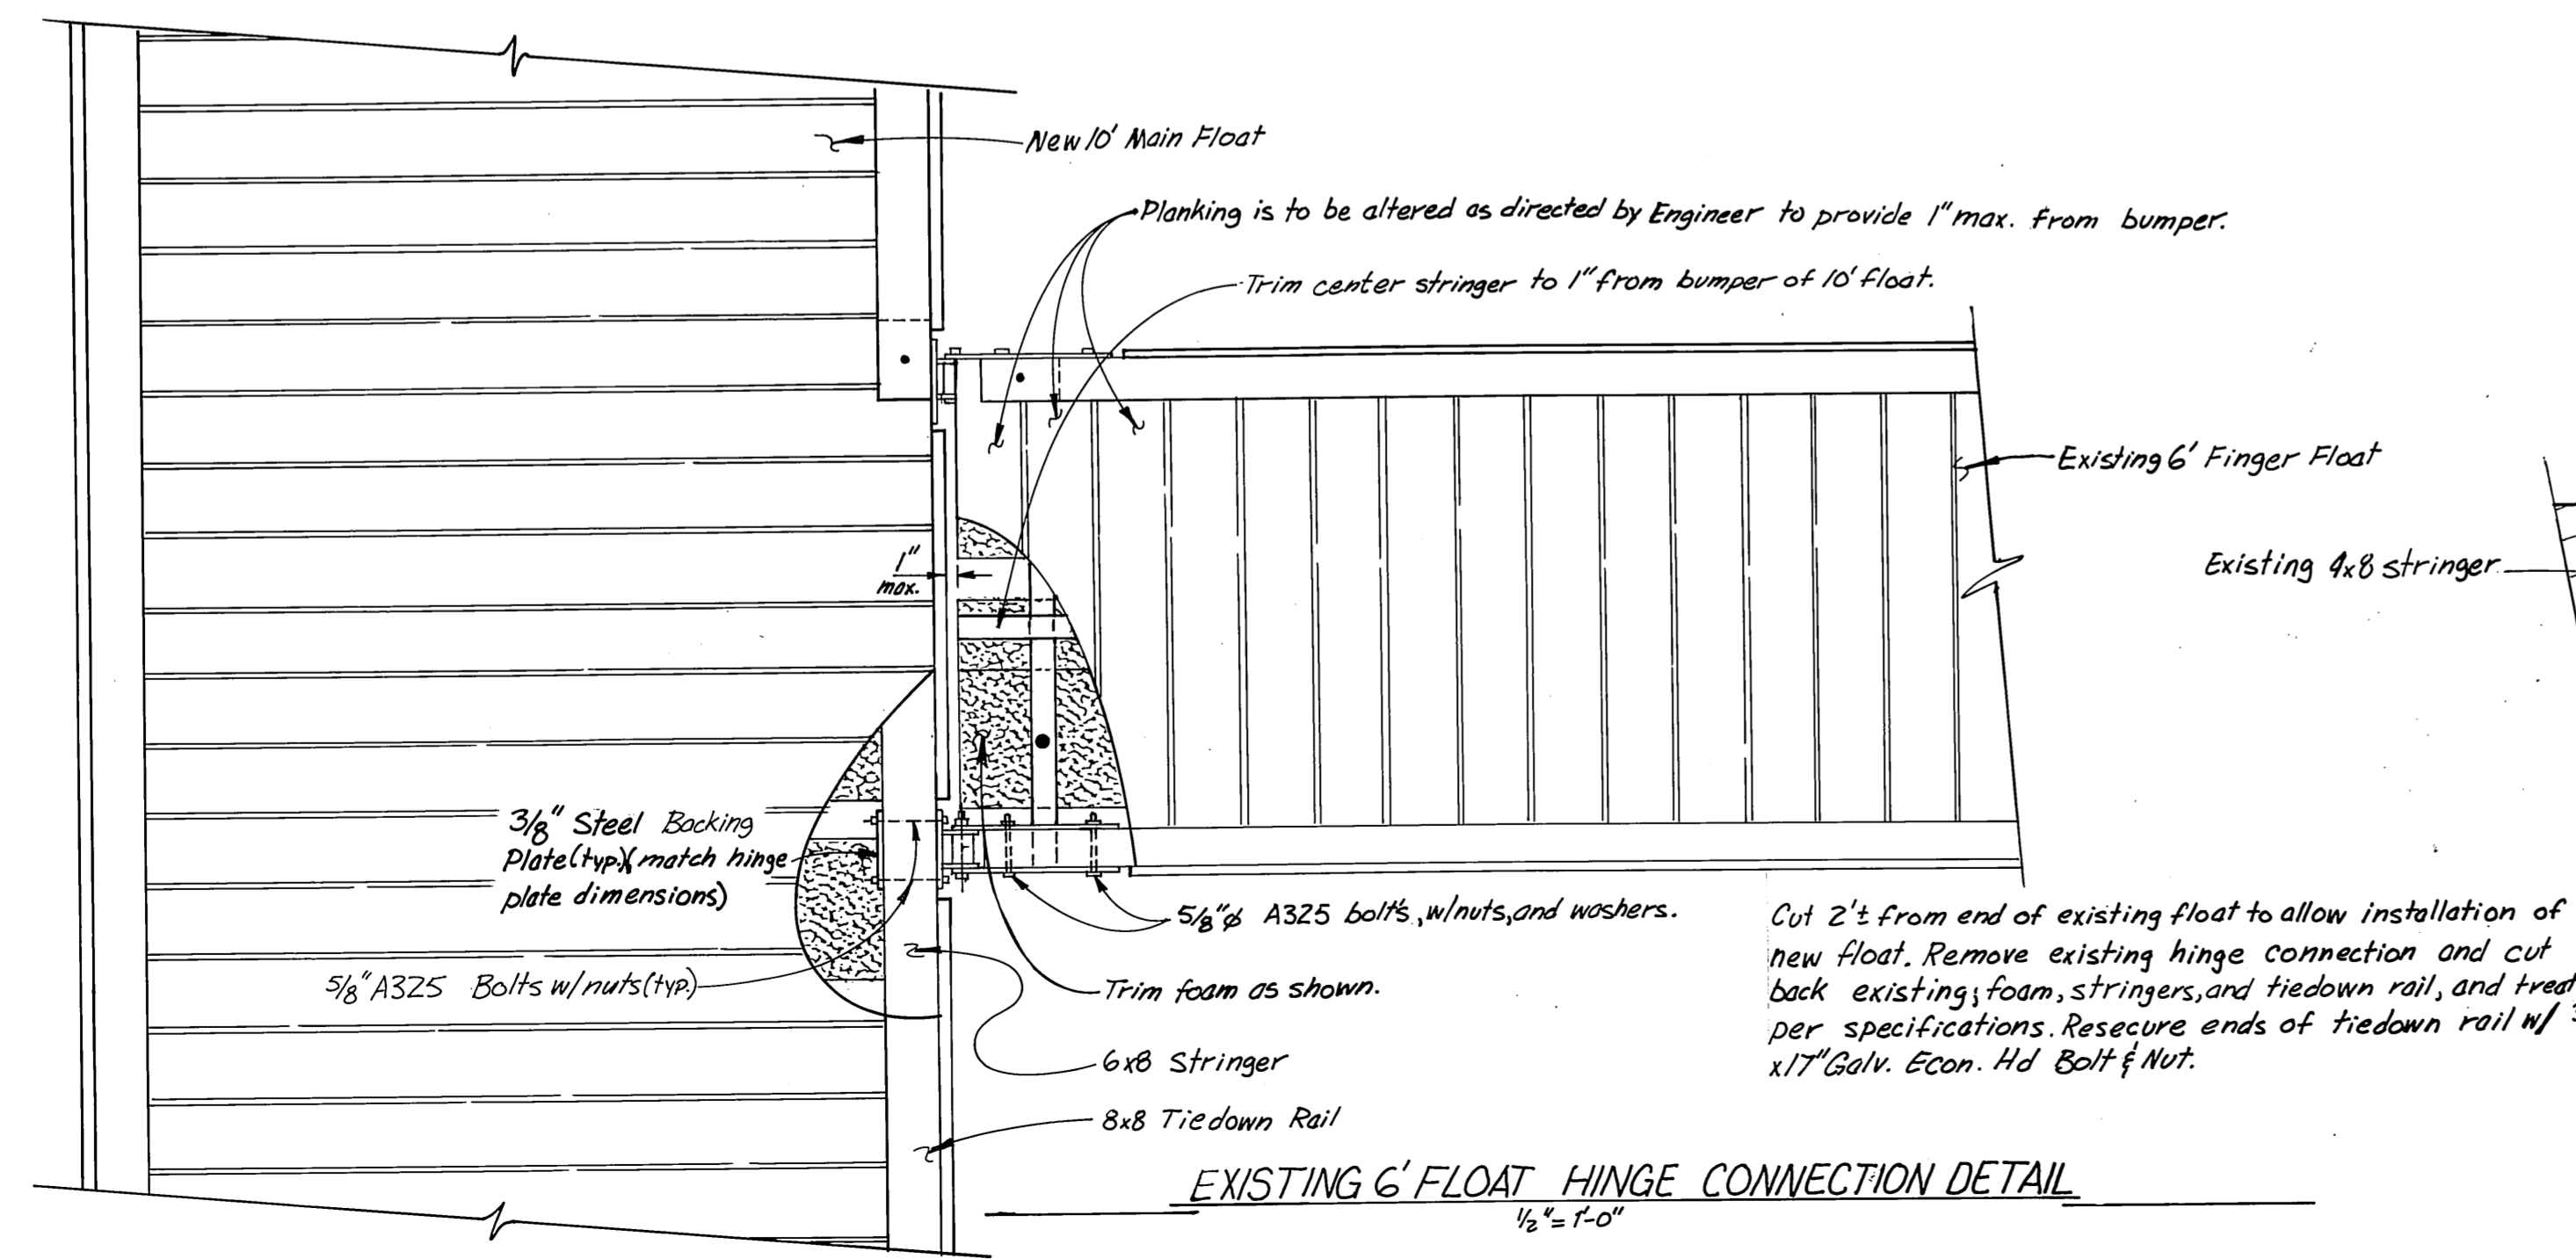 New 10' Main Float
Planking is to be altered as directed by Engineer to provide 1" max. from bumper.
Trim center stringer to 1" from bumper of 10' float.
Existing 6' Finger Float
Existing 4x8 stringer
1"
max.
3/8" Steel Backing
Plate (typ.)(match hinge
plate dimensions)
5/8" A325 Bolts w/nuts (typ.)
5/8"ø A325 bolt's, w/nuts, and washers.
Trim foam as shown.
6x8 Stringer
8x8 Tiedown Rail
Cut 2'± from end of existing float to allow installation of
new float. Remove existing hinge connection and cut
back existing; foam, stringers, and tiedown rail, and treat
per specifications. Resecure ends of tiedown rail w/
x17" Galv. Econ. Hd Bolt & Nut.
EXISTING 6' FLOAT HINGE CONNECTION DETAIL
1/2" = 1'-0"